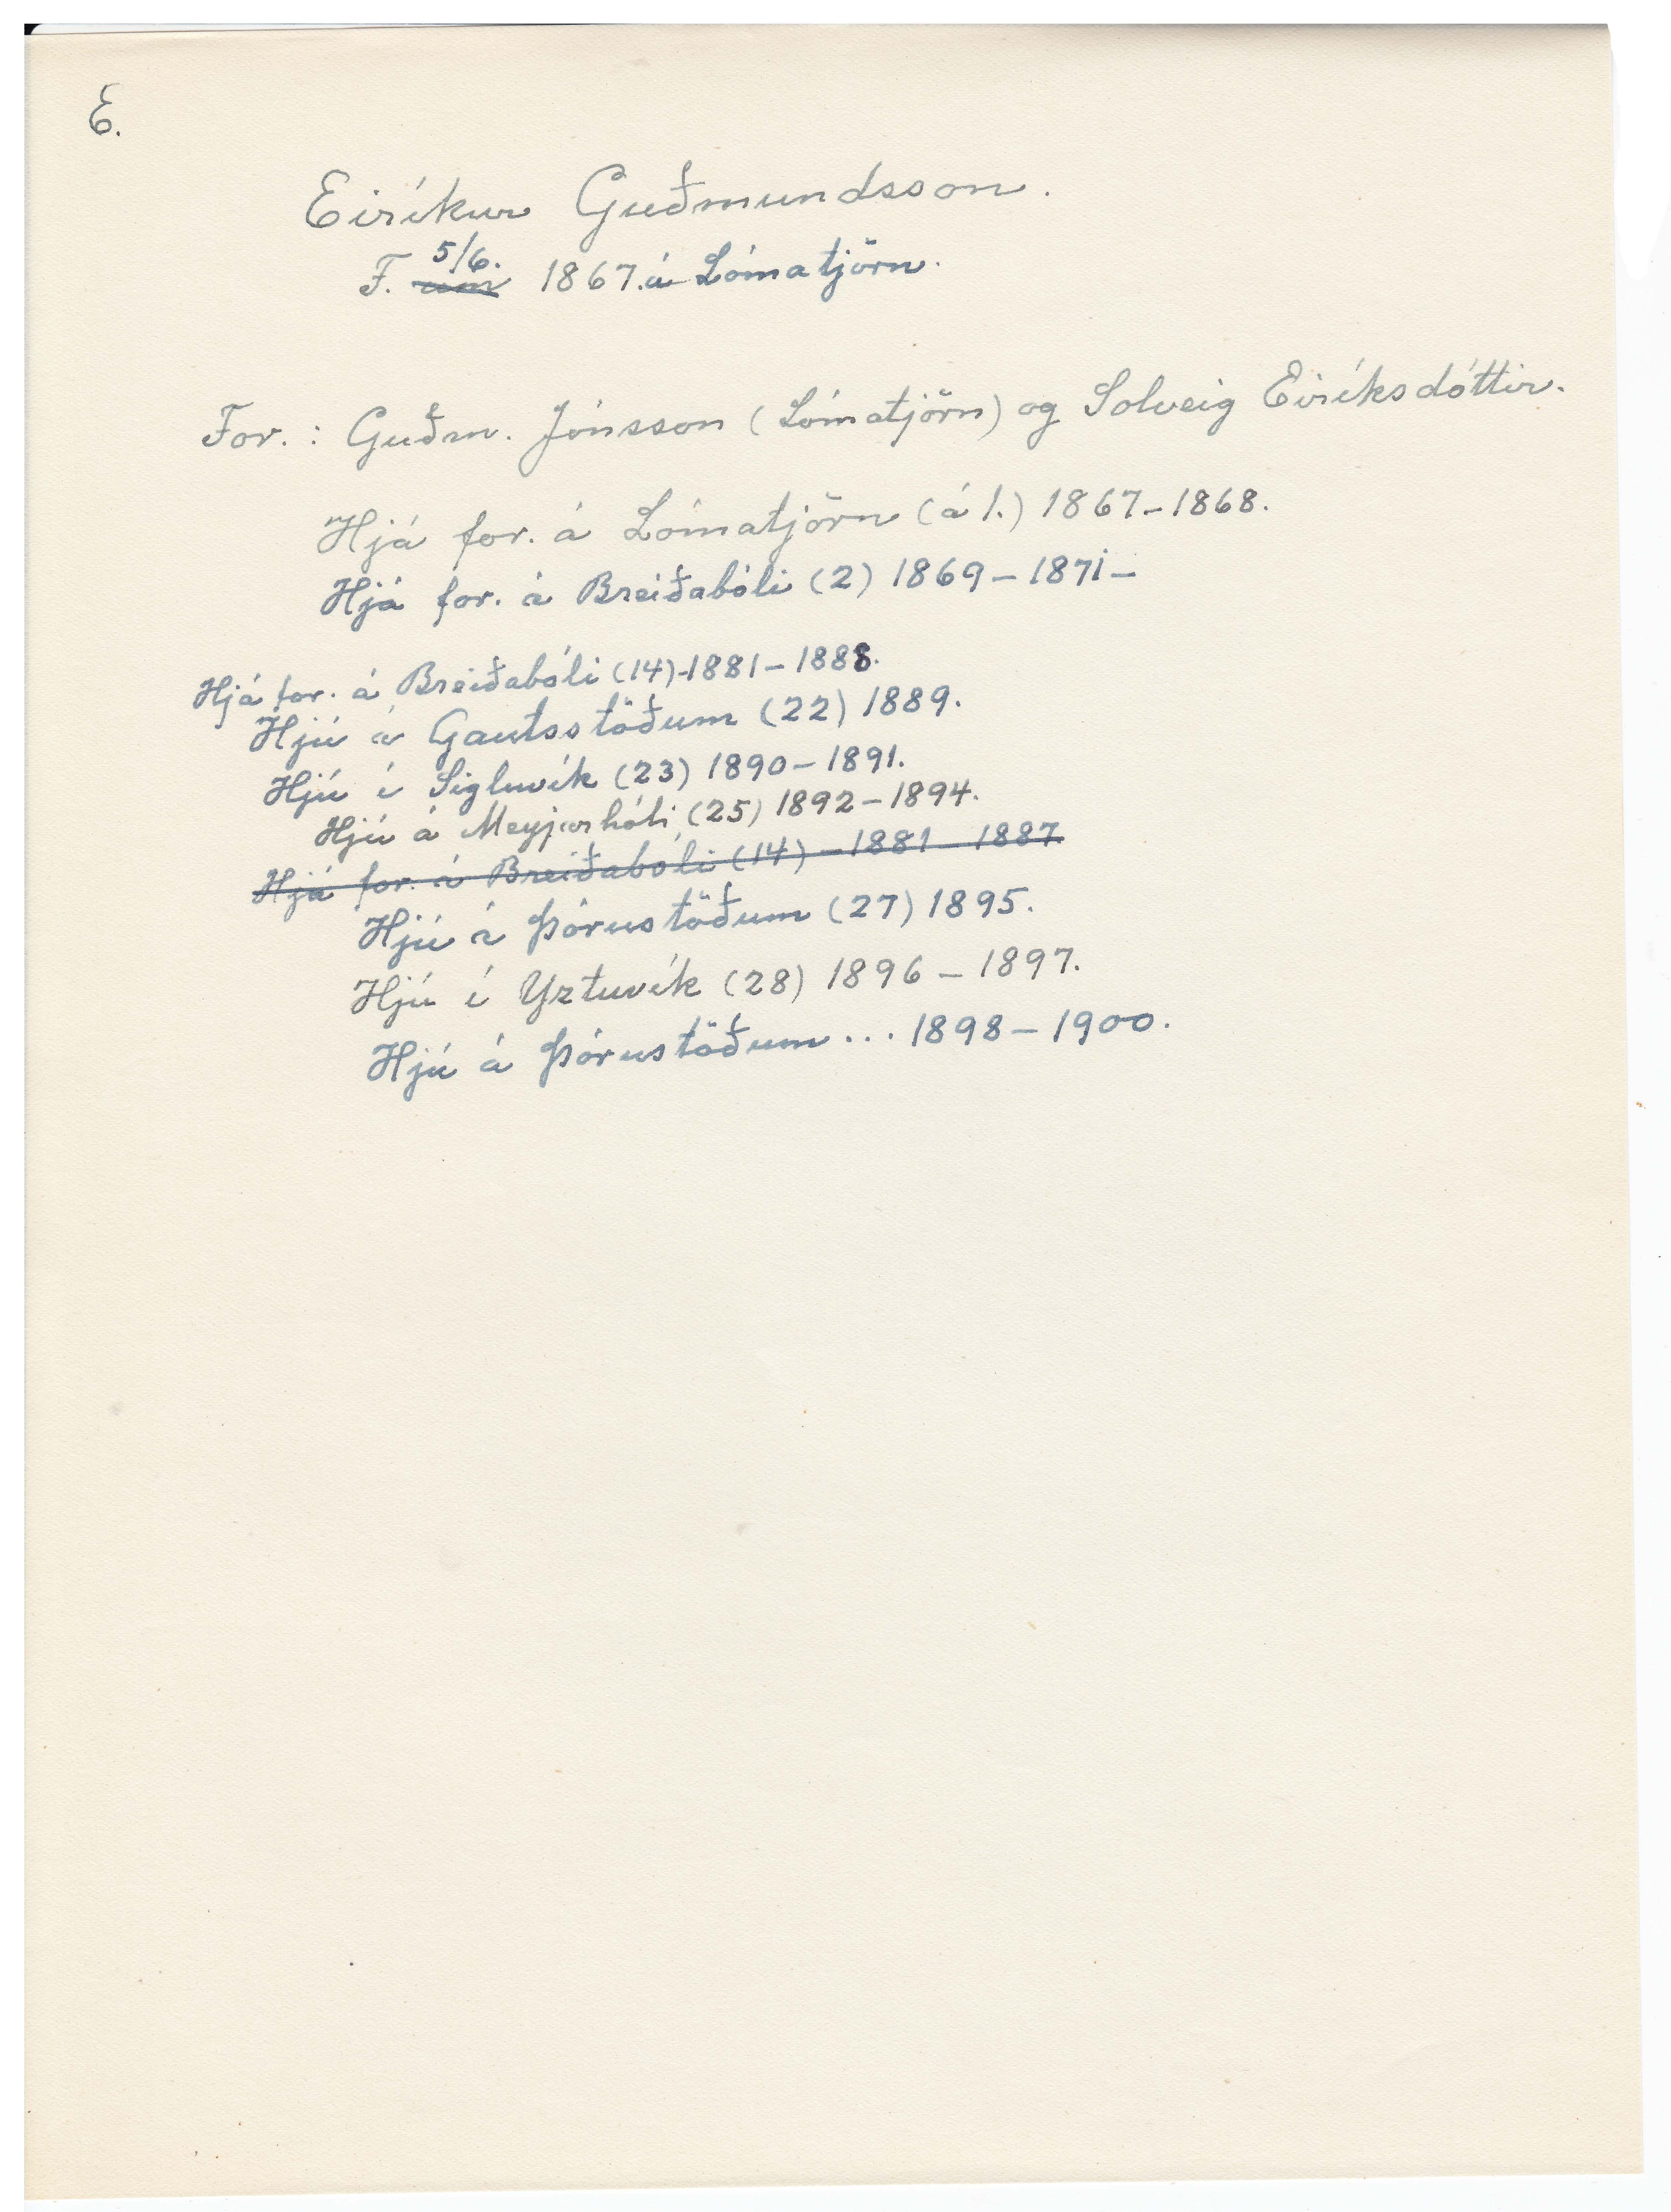 E.
Eiríkur Guðmundsson.
5/6.
F. um 1867. á Lómatjörn.
For. : Guðm. Jónsson (Lómatjörn) og Solveig Eiríksdóttir.
Hjá for. á Lómatjörn (á 1.) 1867-1868.
Hjá for. á Breiðabóli (2) 1869-1871-
Hjá for. á Breiðabóli (14)-1881-1888.
Hjú á Gautsstöðum (22) 1889.
Hjú í Sigluvík (23) 1890-1891.
Hjú á Meyjarhóli (25) 1892-1894.
Hjá for. á Breiðabóli (14) -1881-1887
Hjú á Þórustöðum (27) 1895.
Hjú í Yztuvík (28) 1896-1897.
Hjú á Þórustöðum... 1898-1900.